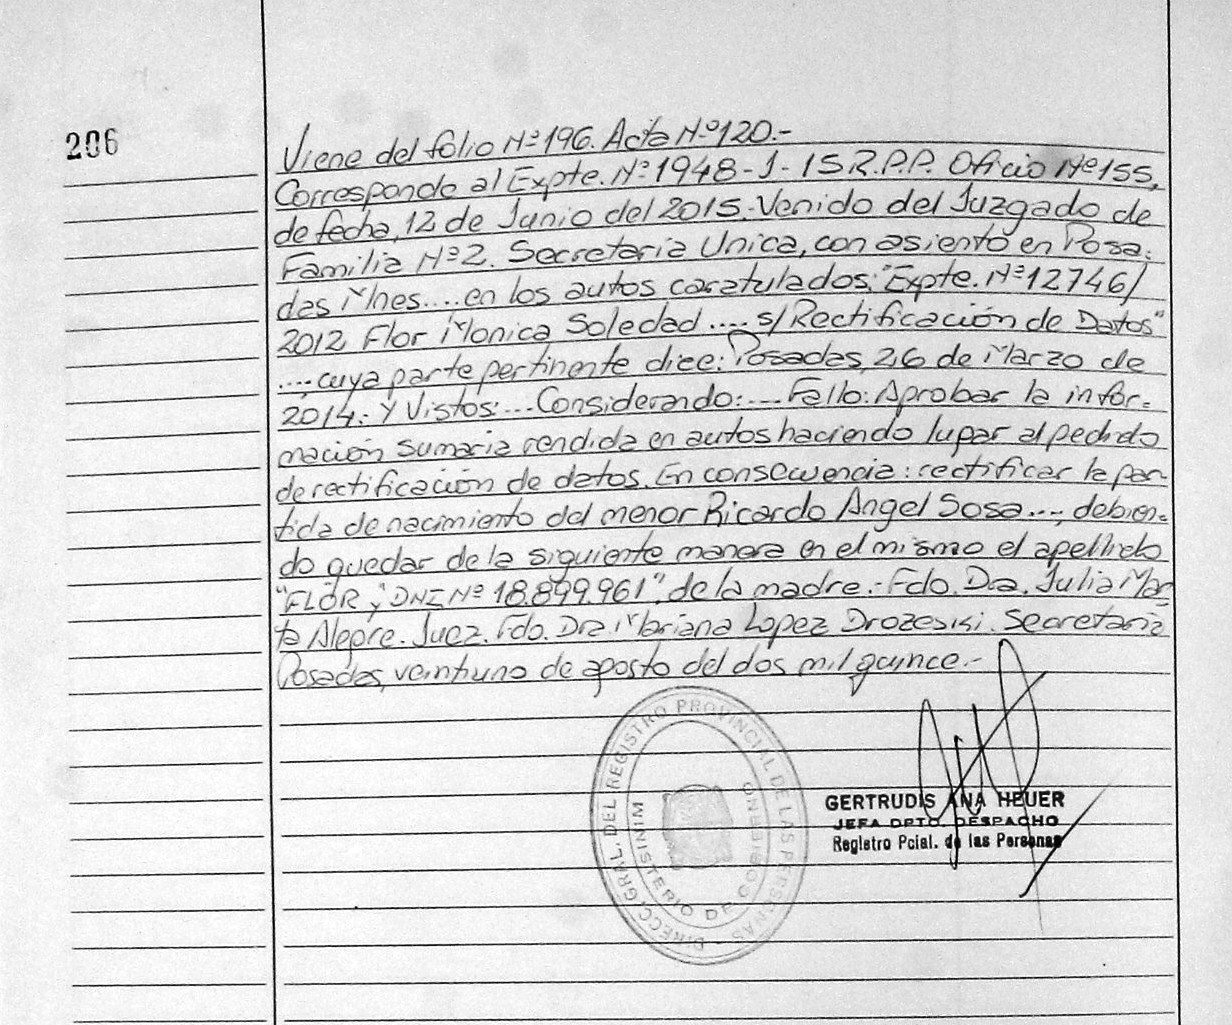 206
Viene del folio Nº 196. Acta N.º 120.-
Corresponde al Expte. Nº 1948-J-15 R.P.P. Oficio Nº 155,
de fecha, 12 de Junio del 2015. Venido del Juzgado de
Familia Nº 2. Secretaria Unica, con asiento en Posa-
das Mnes.... en los autos caratulados; "Expte. Nº 12746/
2012 Flor Monica Soledad .... s/ Rectificación de Datos"
.... cuya parte pertinente dice: Posadas, 26 de Marzo de
2014. Y Vistos:... Considerando:.... Fallo: Aprobar la infor-
mación sumaria rendida en autos haciendo lugar al pedido
de rectificación de datos. En consecuencia: rectificar la par-
tida de nacimiento del menor Ricardo Angel Sosa...., debien-
do quedar de la siguiente manera en el mismo el apellido
"FLOR y DNI Nº 18.899.961" de la madre.- Fdo. Dra. Julia Mar-
ta Alegre. Juez. Fdo. Dra Mariana Lopez Drozeski. Secretaria
Posadas, veintiuno de agosto del dos mil quince.-
DIRECC. GRAL. DEL REGISTRO PROVINCIAL DE LAS PERSONAS
MINISTERIO DE GOBIERNO
GERTRUDIS ANA HEUER
JEFA DPTO. DESPACHO
Registro Pcial. de las Personas